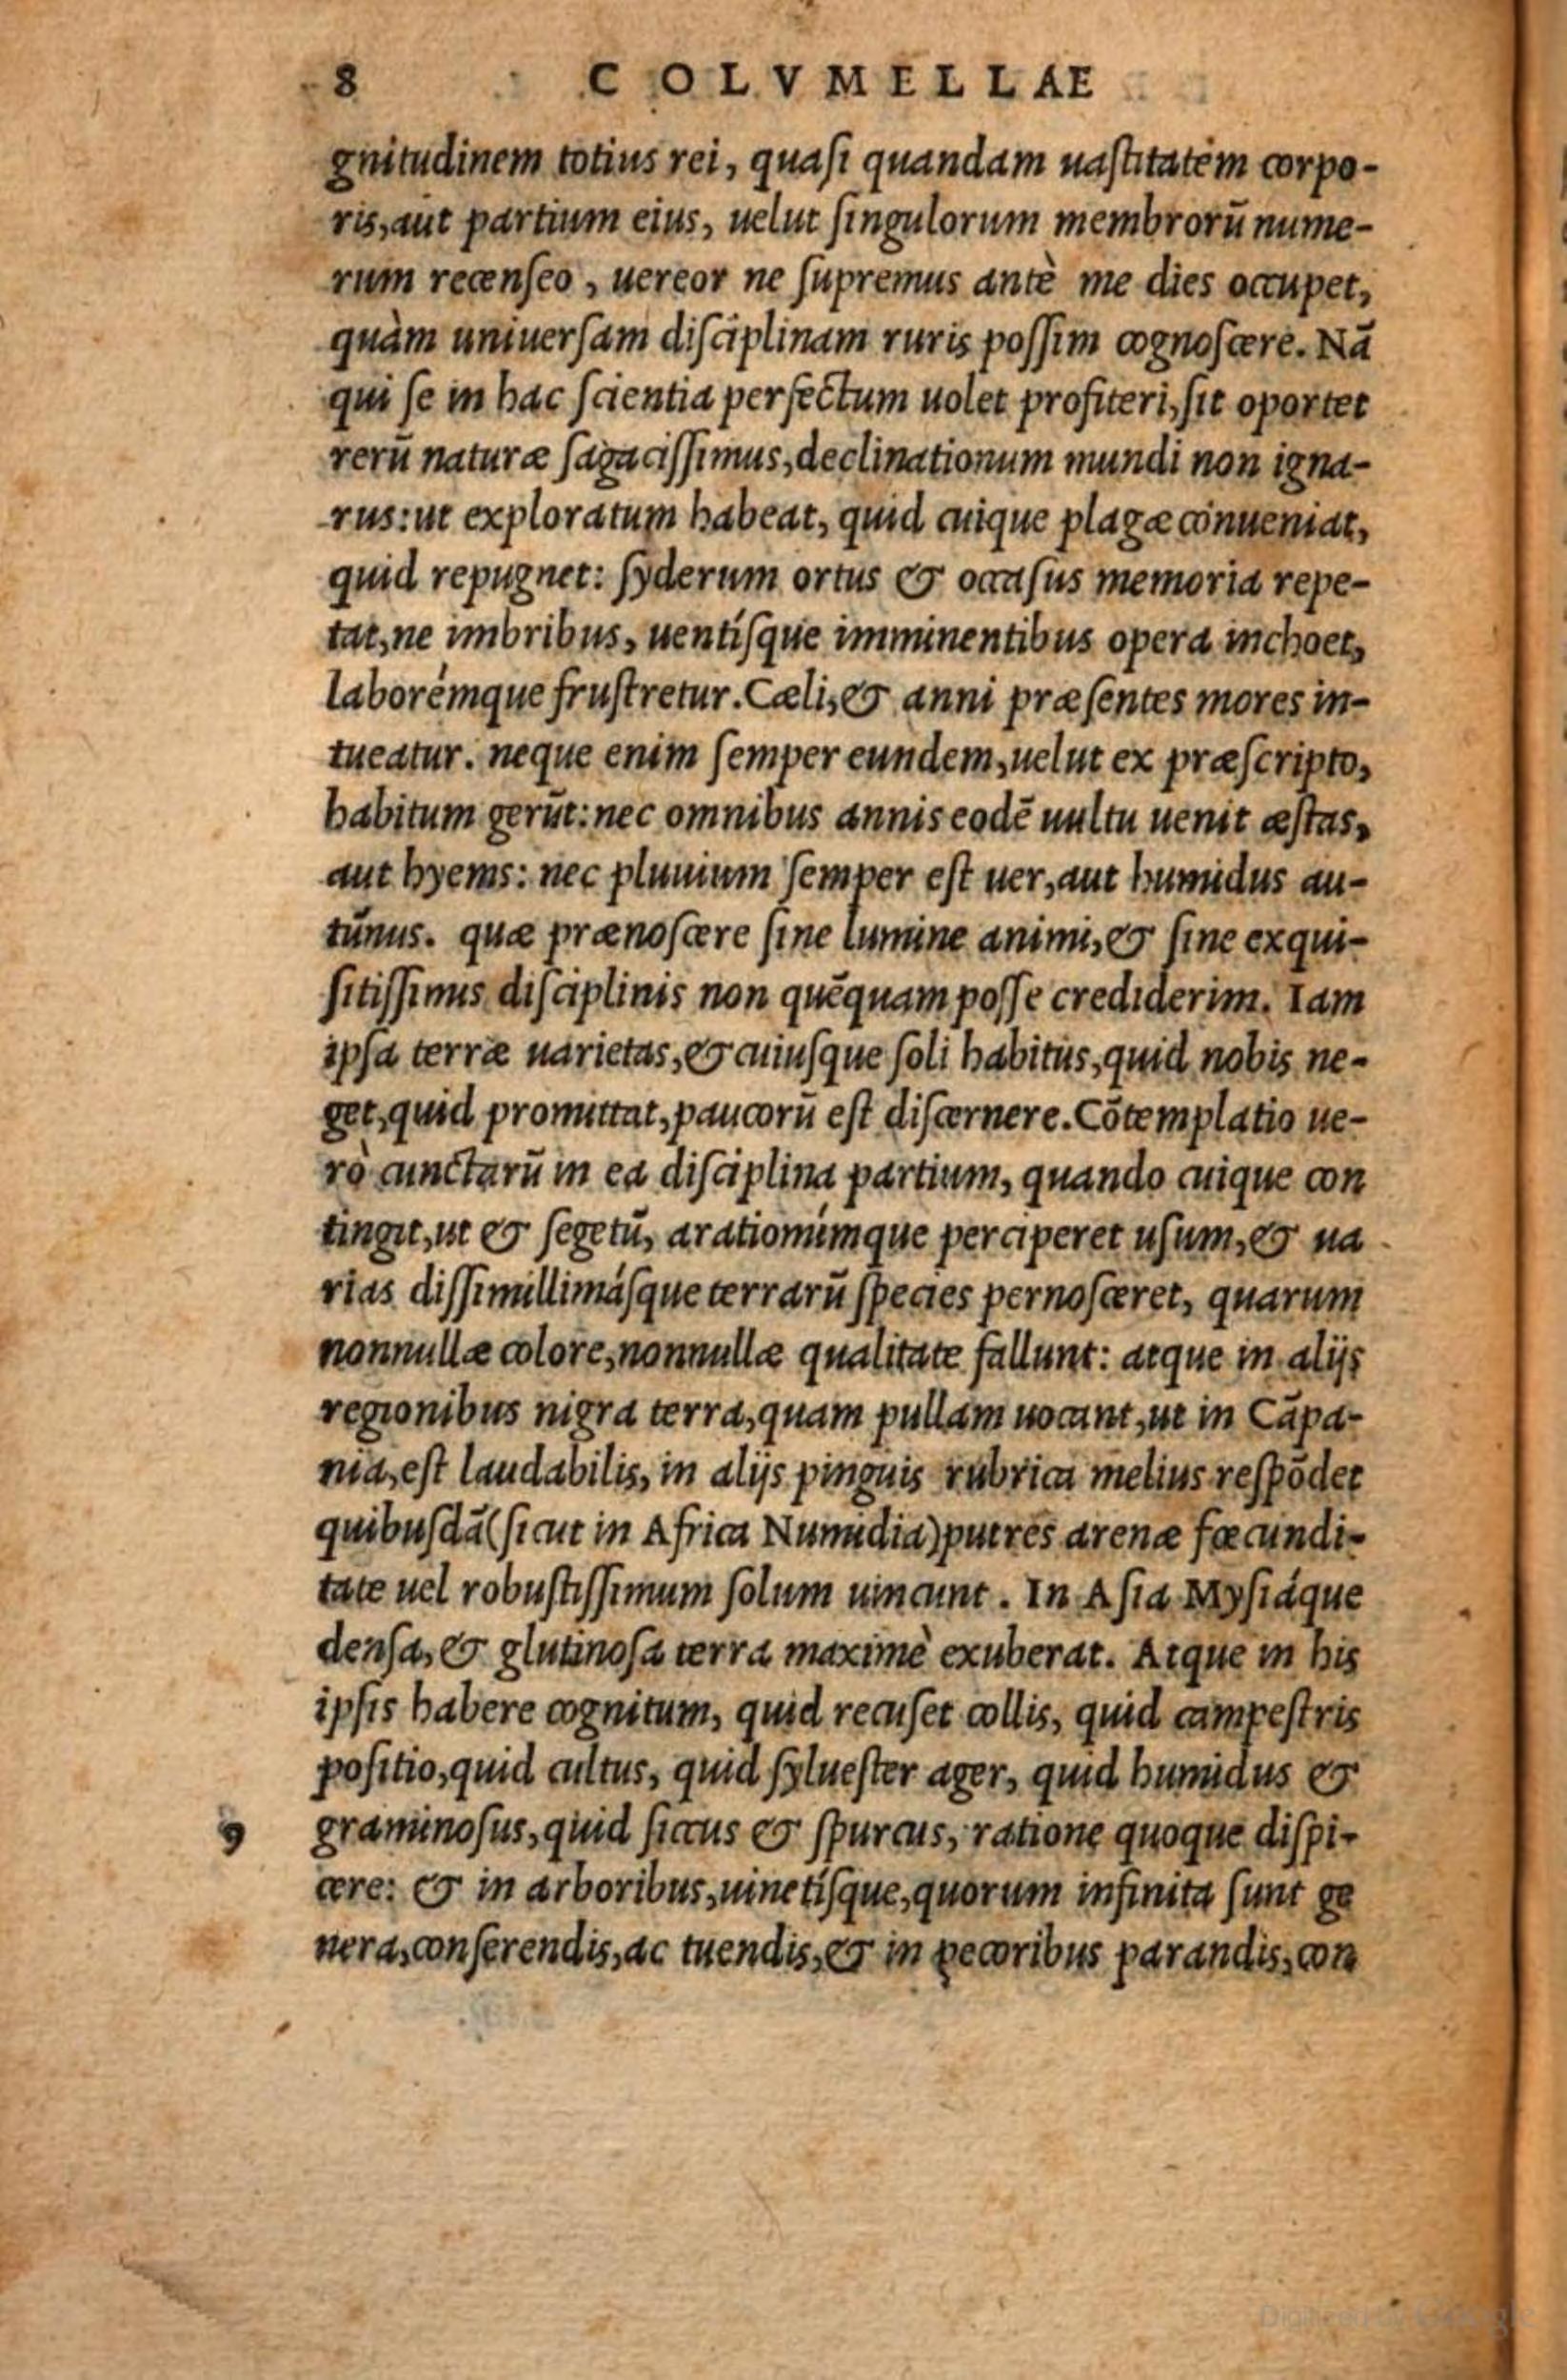 8 COLVMELLAE
gnitudinem totius rei, quaſi quandam uaſtitatem corpo-
ris, aut partium eius, uelut ſingulorum membrorū nume-
rum recenſeo, uereor ne ſupremus antè me dies occupet,
quàm uniuerſam diſciplinam ruris poſſim cognoſcere. Nā
qui ſe in hac ſcientia perfectum uolet profiteri, ſit oportet
rerū naturæ ſagaciſſimus, declinationum mundi non igna-
rus: ut exploratum habeat, quid cuique plagæ conueniat,
quid repugnet: ſyderum ortus & occaſus memoria repe-
tat, ne imbribus, uentíſque imminentibus opera inchoet,
laborémque fruſtretur. Cæli, & anni præſentes mores in-
tueatur. neque enim ſemper eundem, uelut ex præſcripto,
habitum gerūt: nec omnibus annis eodē uultu uenit æſtas,
aut hyems: nec pluuium ſemper eſt uer, aut humidus au-
tūnus. quæ prænoſcere ſine lumine animi, & ſine exqui-
ſitiſſimis diſciplinis non quēquam poſſe crediderim. Iam
ipſa terræ uarietas, & cuiuſque ſoli habitus, quid nobis ne-
get, quid promittat, paucorū eſt diſcernere. Cōtemplatio ue-
rò cunctarū in ea diſciplina partium, quando cuique con
tingit, ut & ſegetū, arationúmque perciperet uſum, & ua
rias diſſimillimáſque terrarū ſpecies pernoſceret, quarum
nonnullæ colore, nonnullæ qualitate fallunt: atque in alijs
regionibus nigra terra, quam pullam uocant, ut in Cāpa-
nia, eſt laudabilis, in alijs pinguis rubrica melius reſpōdet
quibuſdā (ſicut in Africa Numidia) putres arenæ fœcundi-
tate uel robuſtiſſimum ſolum uincunt. In Aſia Myſiáque
denſa, & glutinoſa terra maximè exuberat. Atque in his
ipſis habere cognitum, quid recuſet collis, quid campeſtris
poſitio, quid cultus, quid ſylueſter ager, quid humidus &
9 graminoſus, quid ſiccus & ſpurcus, ratione quoque diſpi-
cere: & in arboribus, uinetíſque, quorum infinita ſunt ge
nera, conſerendis, ac tuendis, & in pecoribus parandis, con
Digitized by Google